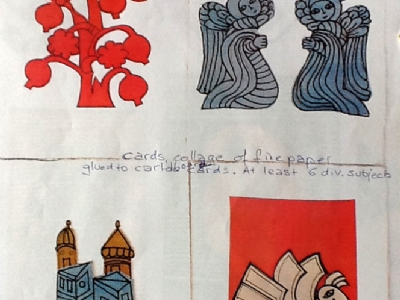 cards, collage of fine paper
glued to cardboard cards. At least 6 div. subjects